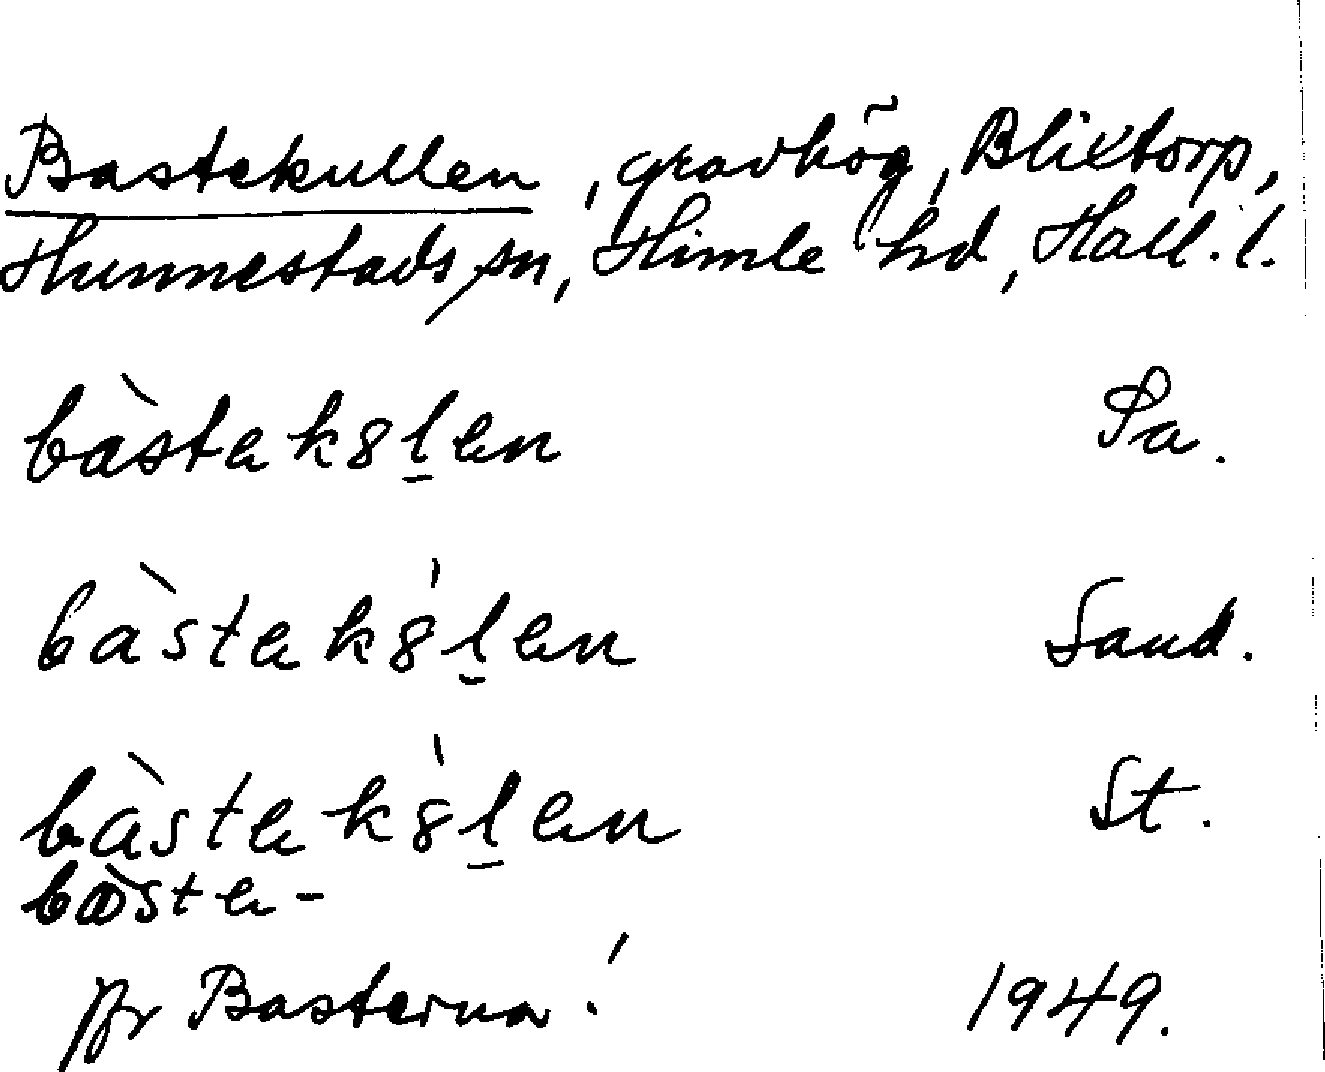 Bastekullen, gravhög, Blixtorp,
Hunnestads sn, Himle hd, Hall. l.
bàstek8l̠en Pa.
bàstek8̍l̠en Sand.
bàstek8̍l̠en St.
bɑ̀ste-
jfr Basterna! 1949.